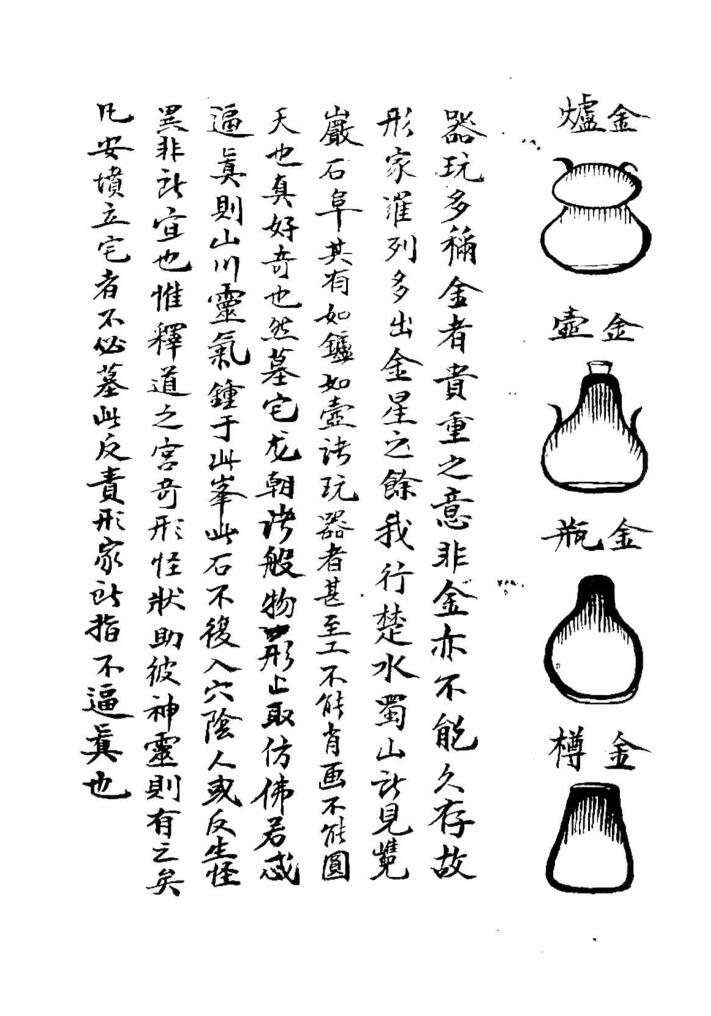 金爐
金壺
金瓶
金樽
器玩多稱金者貴重之意非金亦不能久存故
形家羅列多出金星之餘我行楚水蜀山所見
巖石阜其有如鑪如壺諸玩器者甚至工不能肖画不能圓
天也真好奇也然墓宅龙朝諸般物形止取仿佛若忒
逼真則山川靈氣鍾于此峯此石不復入穴陰人或反生怪
異非所宜也惟釋道之宮奇形怪狀助彼神靈則有之矣
凡安墳立宅者不必墓此反責形家所指不逼真也